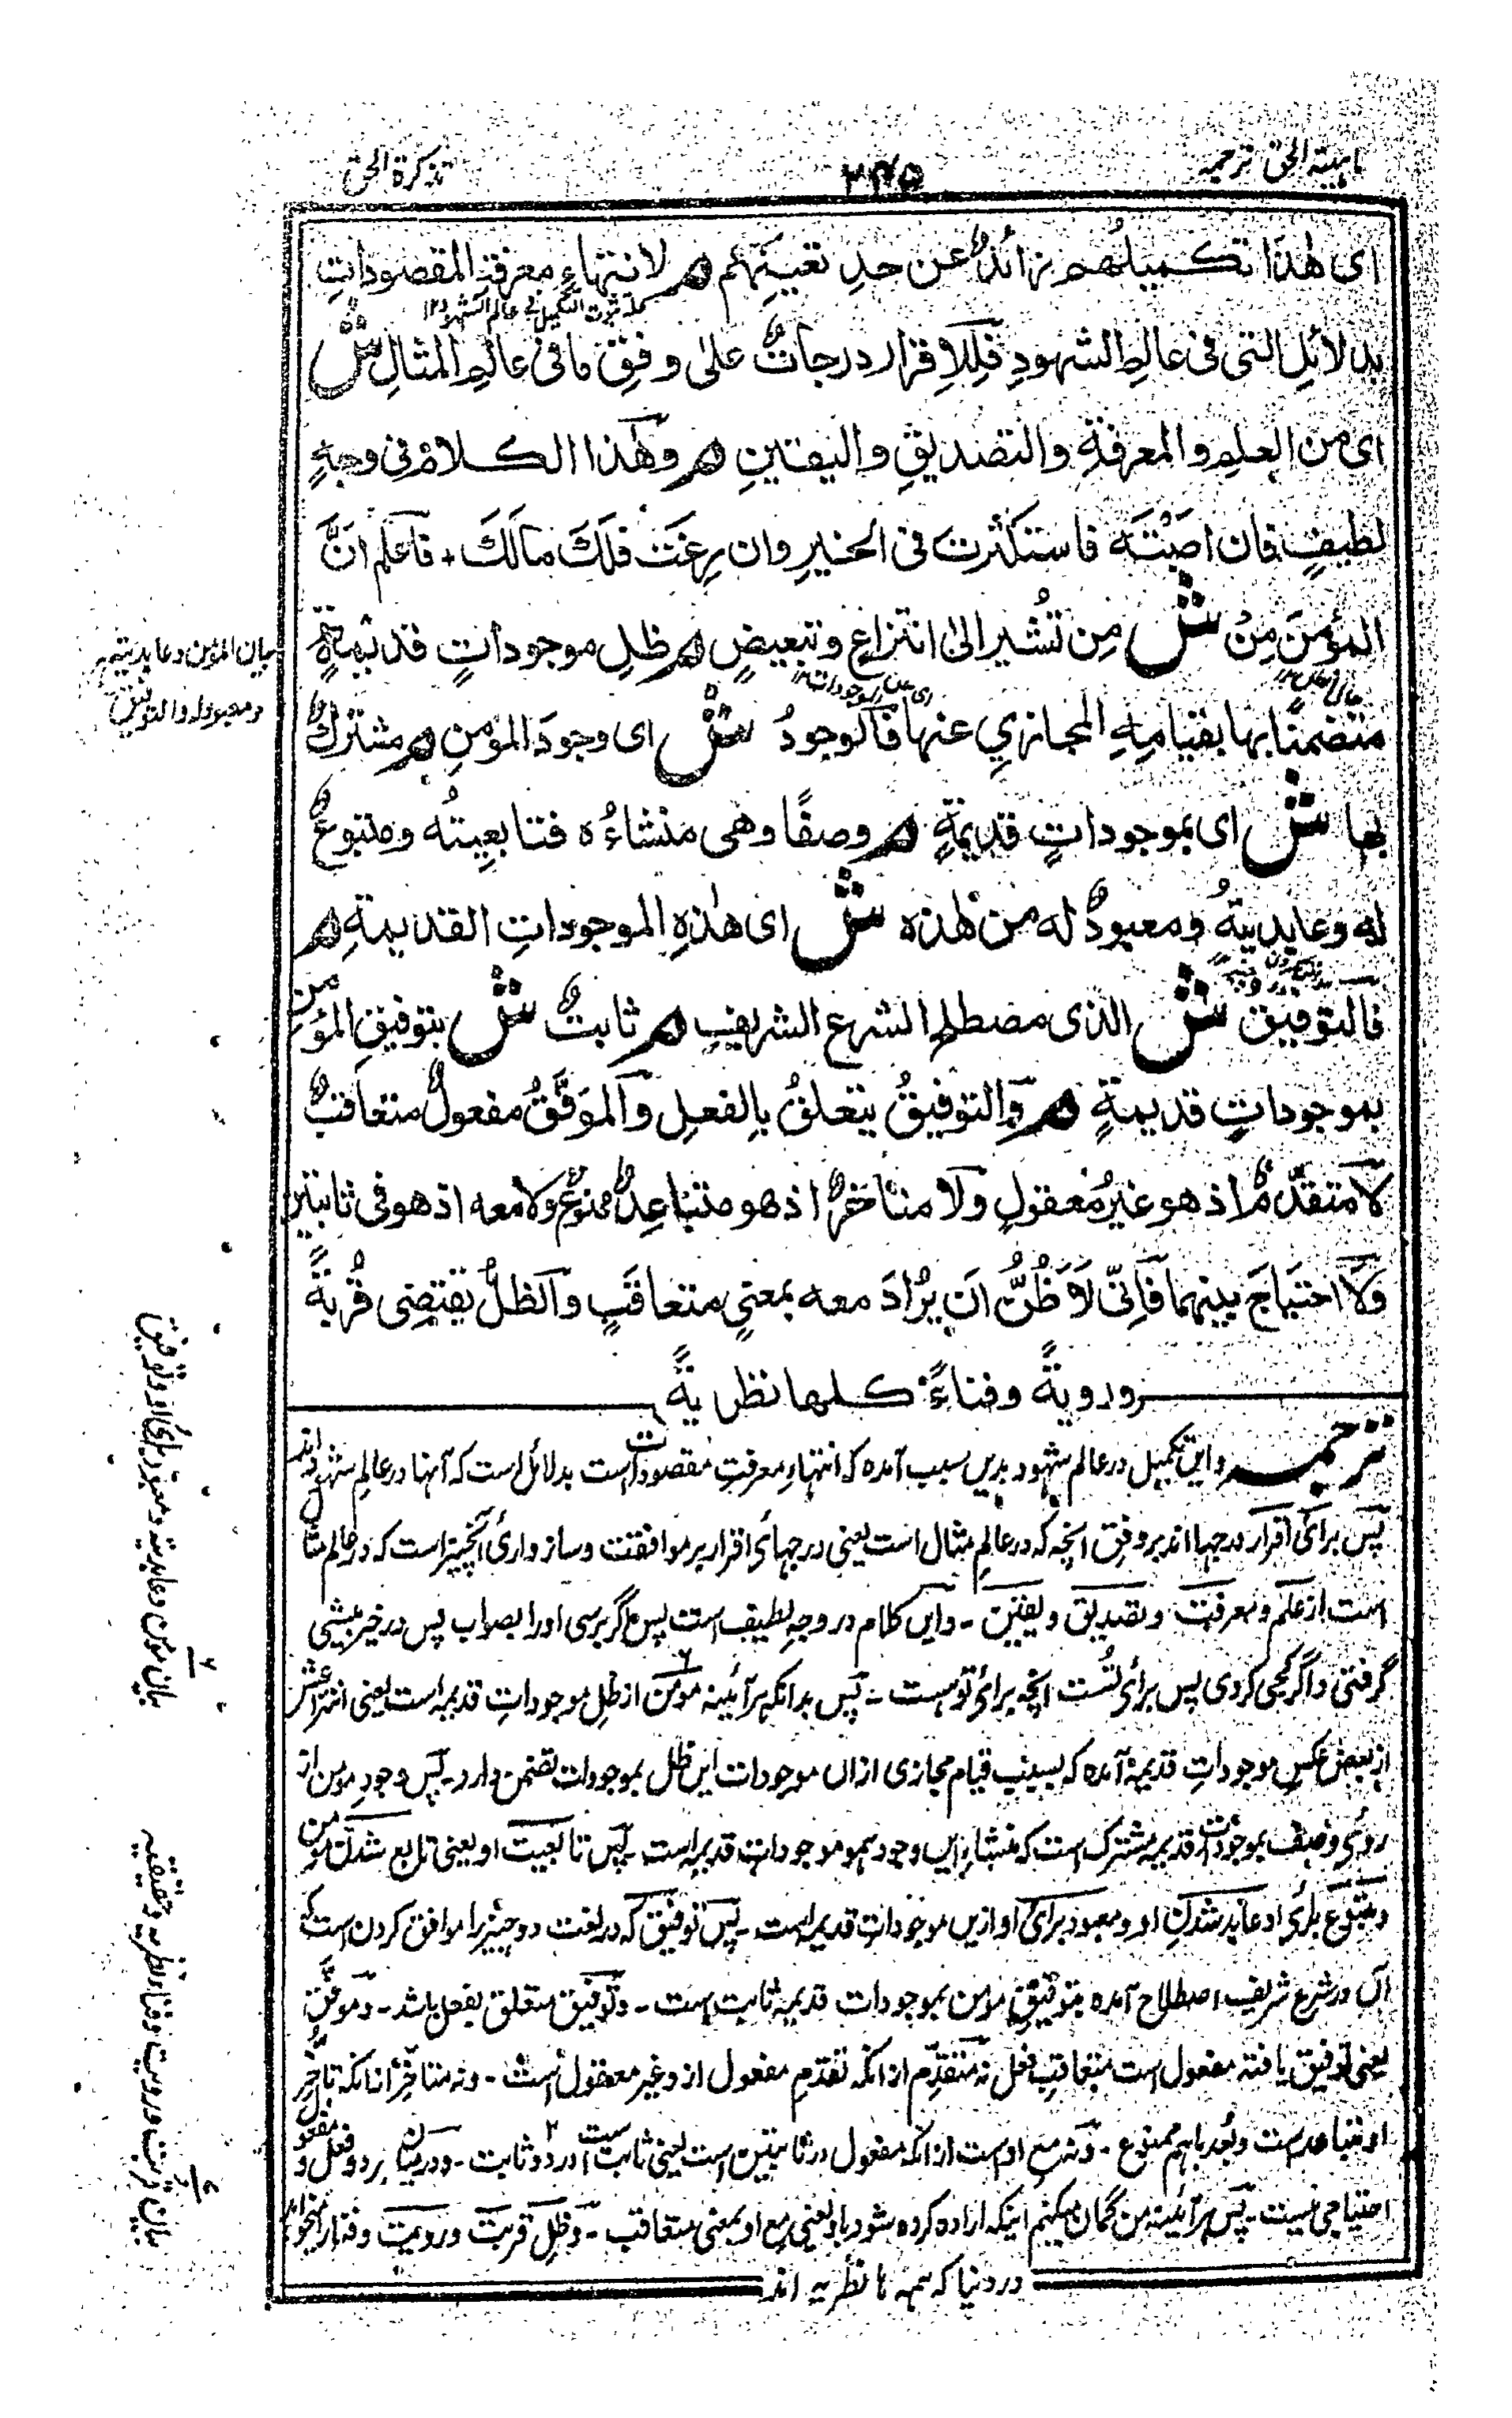 ماهیة الحق ترجمه
۳۴۵
تذکرة الحق
ای هٰذا تکمیلُهم زائدٌ عن حدِ تعینِهم م لانتهاءِ معرفةِ المقصوداتِ
بدلائلِ التی فی عالمِ الشهودِ فللاقرار درجاتٌ علیٰ وفقِ ما فی عالمِ المثالِ ش
ای من العلمِ و المعرفةِ والتصدیقِ والیقینِ م وهٰذا الکلامُ فی وجهٍ
لطیفٍ فان اصبْتَه فاستکثرت فی الخیرِ وان زِغتَ فلکَ مالکَ + فاعلم انَّ
المؤمنَ مِنْ ش مِن تُشیر الیٰ انتزاعٍ وتبعیضٍ م ظلِ موجوداتٍ قدیمةٍ
متضمنًا بها بقیامِهِ المجازیِ عنها فالوجودُ ش ای وجودَ المؤمنِ م مشترکٌ
بها ش ای بموجوداتٍ قدیمةٍ م وصفًا وهی منشاءُه فتابعیتُه ومتبوعٌ
له وعابدیتهُ ومعبودٌ له من هٰذه ش ای هٰذهِ الموجوداتِ القدیمةِ م
فالتوفیق ش الذی مصطلح الشرع الشریفِ م ثابتٌ ش بتوفیقِ المؤمنِ
بموجوداتٍ قدیمةٍ م والتوفیقُ یتعلقُ بالفعلِ والموَفَّقُ مفعولٌ متعاقبٌ
لا متقدّمٌ اذ هو غیرُ معقولٍ ولا متاخرٌ اذ هو متباعِدٌ ممنوعٌ ولا معه اذ هو فی ثابتین
ولا احتیاجَ بینهما فانّی لاَظُنُّ ان یُرادَ معه بمعنیٰ متعاقبٍ والظلُ یقتضِی قُربةً
ورویةً وفناءً کلها نظریةً
ترجمه واین تکمیل در عالم شهود بدیں سبب آمده که انتهاءِ معرفتِ مقصودات است بدلائل است که آنها در عالم شهود اند
پس برائ اقرار درجها اند بر وفقِ انچه که در عالمِ مثال است یعنی درجهائ اقرار بر موافقت وسازواریٔ آنچیز است که در عالم مثال
است از علم و معرفت وتصدیق ویقین - وایں کلام در وجہِ لطیف است پس اگر برسی او را بصواب پس در خیر بیشی
گرفتی واگر کجی کردی پس برائ تُست انچه برائ تو هست - پس بدانکه هر آئینه مومن از ظلِ موجوداتِ قدیمه است یعنی انتزاعش
از بعض عکسِ موجوداتِ قدیمه آمده که بسببِ قیام مجازی ازاں موجودات ایں ظل بموجودات تضمن دارد - پس وجودِ مومن از
روئ وصف بموجودات قدیمه مشترک است که منشاءِ ایں وجود همو موجودات قدیمه است - پس تابعیت او یعنی تابع شدن مومن
ومتبوع برائ او عابد شدنِ او ومعبود برائ او ازیں موجوداتِ قدیمه است - پس توفیق که در لغت دو چیز را موافق کردن است که
آں در شرع شریف اصطلاح آمده بتوفیقِ مومن بموجودات قدیمه ثابت است - وتوفیق متعلق بفعل باشد - وموفَّق
یعنی توفیق یافته مفعول است متعاقبِ فعل نه متقدِّم از انکه تقدّمِ مفعول ازو غیر معقول است - ونه متاخِّر از انکه تاخُّر
او تباعد است وبُعد باهم ممنوع - ونه مع او است از انکه مفعول در ثابتین است یعنی ثابت است در دو ثابت - ودرمیان هر دو فعل و مفعول
احتیاجی نیست - پس هر آئینه من گمان میکنم اینکه اراده کرده شود باو یعنی مع او بمعنی متعاقب - وظلِ قربت ورویت وفنا را میخواهد
در دنیا که همه ها نظریه اند
بیان المؤمن وعابدیته
ومعبوده والتوفیق
بیان مومن وعابدیته ومعبود برائ او وتوفیق
بیان قربت ورویت وفناء نظریه وحقیقیه